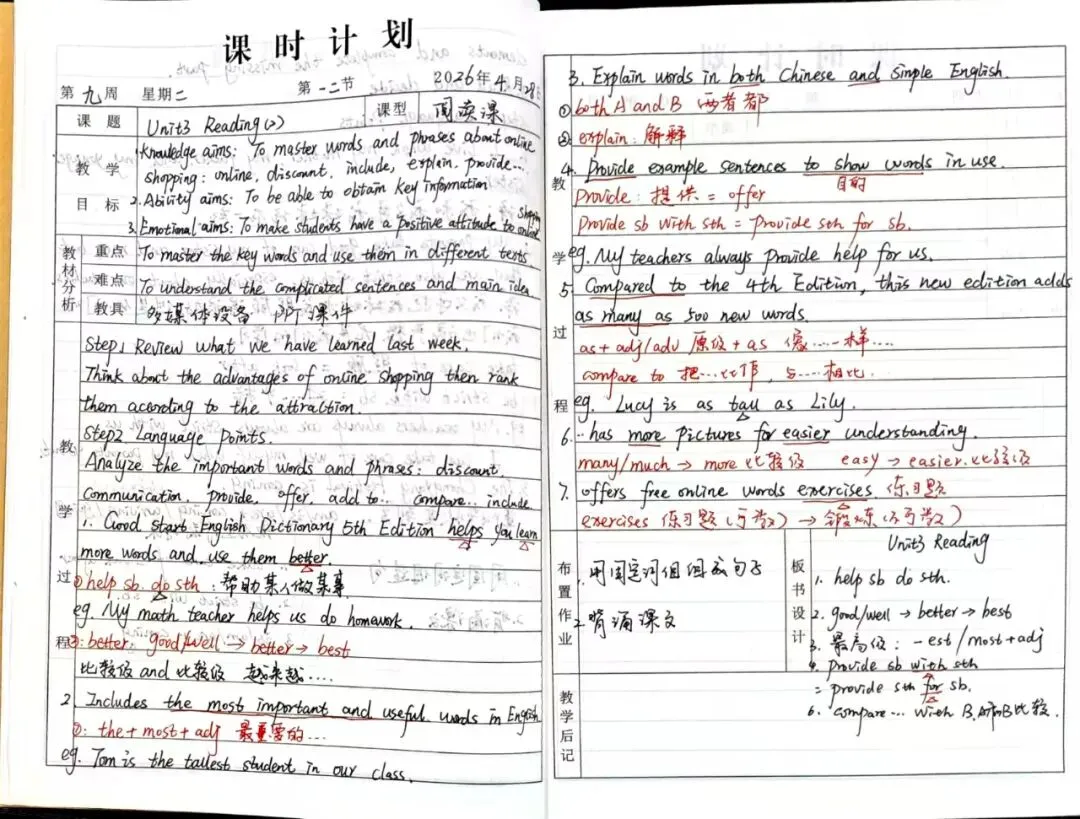 课时计划
第九周 星期二 第一二节 2026年4月28日
课题 Unit3 Reading(2) 课型 阅读课
教学目标
1. Knowledge aims: To master words and phrases about online
shopping: online, discount, include, explain, provide...
2. Ability aims: To be able to obtain key information
3. Emotional aims: To make students have a positive attitude to online shopping
教材分析
重点 To master the key words and use them in different texts
难点 To understand the complicated sentences and main idea.
教具 多媒体设备 PPT课件
教学过程
Step1 Review what we have learned last week.
Think about the advantages of online shopping then rank
them according to the attraction.
Step2 Language Points.
Analyze the important words and phrases: discount.
Communication, provide, offer, add to... compare... include
1. Good start English Dictionary 5th Edition helps you learn
more words and use them better.
① help sb do sth : 帮助某人做某事
eg. My math teacher helps us do homework.
②: better: good/well → better → best
比较级 and 比较级 越来越....
2. Includes the most important and useful words in English
①: the + most + adj 最重要的...
eg. Tom is the tallest student in our class.
教学过程
3. Explain words in both Chinese and simple English.
① both A and B 两者都
② explain: 解释
4. Provide example sentences to show words in use.
目的
Provide: 提供 = offer
Provide sb with sth = Provide sth for sb.
eg. My teachers always provide help for us.
5. Compared to the 4th Edition, this new edition adds
as many as 500 new words.
as + adj/adv 原级 + as 像...一样....
compare to 把...比作, 与....相比.
eg. Lucy is as tall as Lily.
6. ...has more pictures for easier understanding.
many/much → more 比较级 easy → easier 比较级
7. offers free online words exercises. 练习题
exercises 练习题(可数) → 锻炼(不可数)
布置作业
1. 用固定词组组成句子
2. 背诵课文
板书设计
Unit3 Reading
1. help sb do sth.
2. good/well → better → best
3. 最高级: -est/most+adj
4. Provide sb with sth
= provide sth for sb.
6. compare... with B.
教学后记